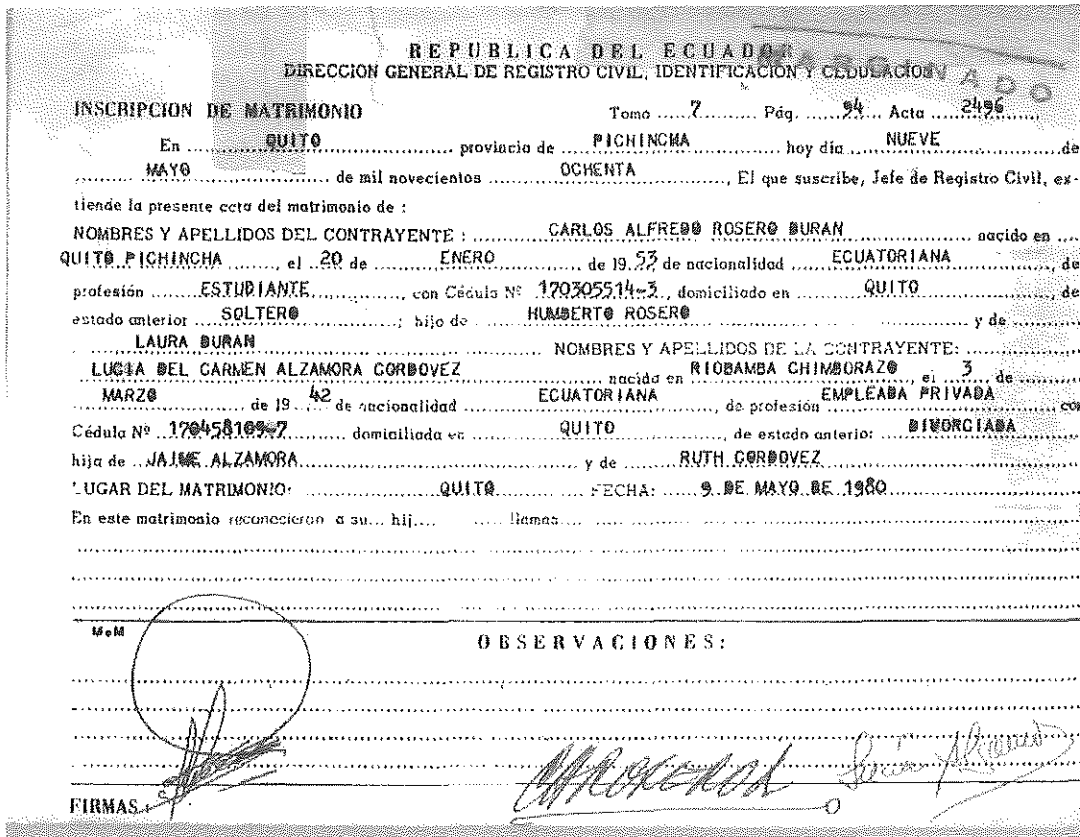 REPUBLICA DEL ECUADOR
DIRECCION GENERAL DE REGISTRO CIVIL, IDENTIFICACION Y CEDULACION
MARGINADO
INSCRIPCION DE MATRIMONIO Tomo ...7... Pág. ...94... Acta ...2496...
En ...QUITO... provincia de ...PICHINCHA... hoy día ...NUEVE... de
MAYO ... de mil novecientos ...OCHENTA..., El que suscribe, Jefe de Registro Civil, ex-
tiende la presente acta del matrimonio de :
NOMBRES Y APELLIDOS DEL CONTRAYENTE : ...CARLOS ALFREDO ROSERO DURAN... nacido en ...
QUITO PICHINCHA ..., el ..20 de ...ENERO... de 19.53 de nacionalidad ...ECUATORIANA..., de
profesión ...ESTUDIANTE..., con Cédula Nº 170305514-3, domiciliado en ...QUITO..., de
estado anterior ...SOLTERO...; hijo de ...HUMBERTO ROSERO... y de ...
LAURA DURAN ... NOMBRES Y APELLIDOS DE LA CONTRAYENTE: ...
LUCIA DEL CARMEN ALZAMORA CORDOVEZ ... nacida en ...RIOBAMBA CHIMBORAZO, el ...3... de ...
MARZO ... de 19 ..42 de nacionalidad ...ECUATORIANA..., de profesión ...EMPLEADA PRIVADA... con
Cédula Nº 170458109-7 domiciliada en ...QUITO..., de estado anterior ...DIVORCIADA
hija de ..JAIME ALZAMORA... y de ...RUTH CORDOVEZ...
LUGAR DEL MATRIMONIO: ...QUITO... FECHA: ...9 DE MAYO DE 1980...
En este matrimonio reconocieron a su... hij.... ..... llamad.... ...
MoM
OBSERVACIONES:
FIRMAS :